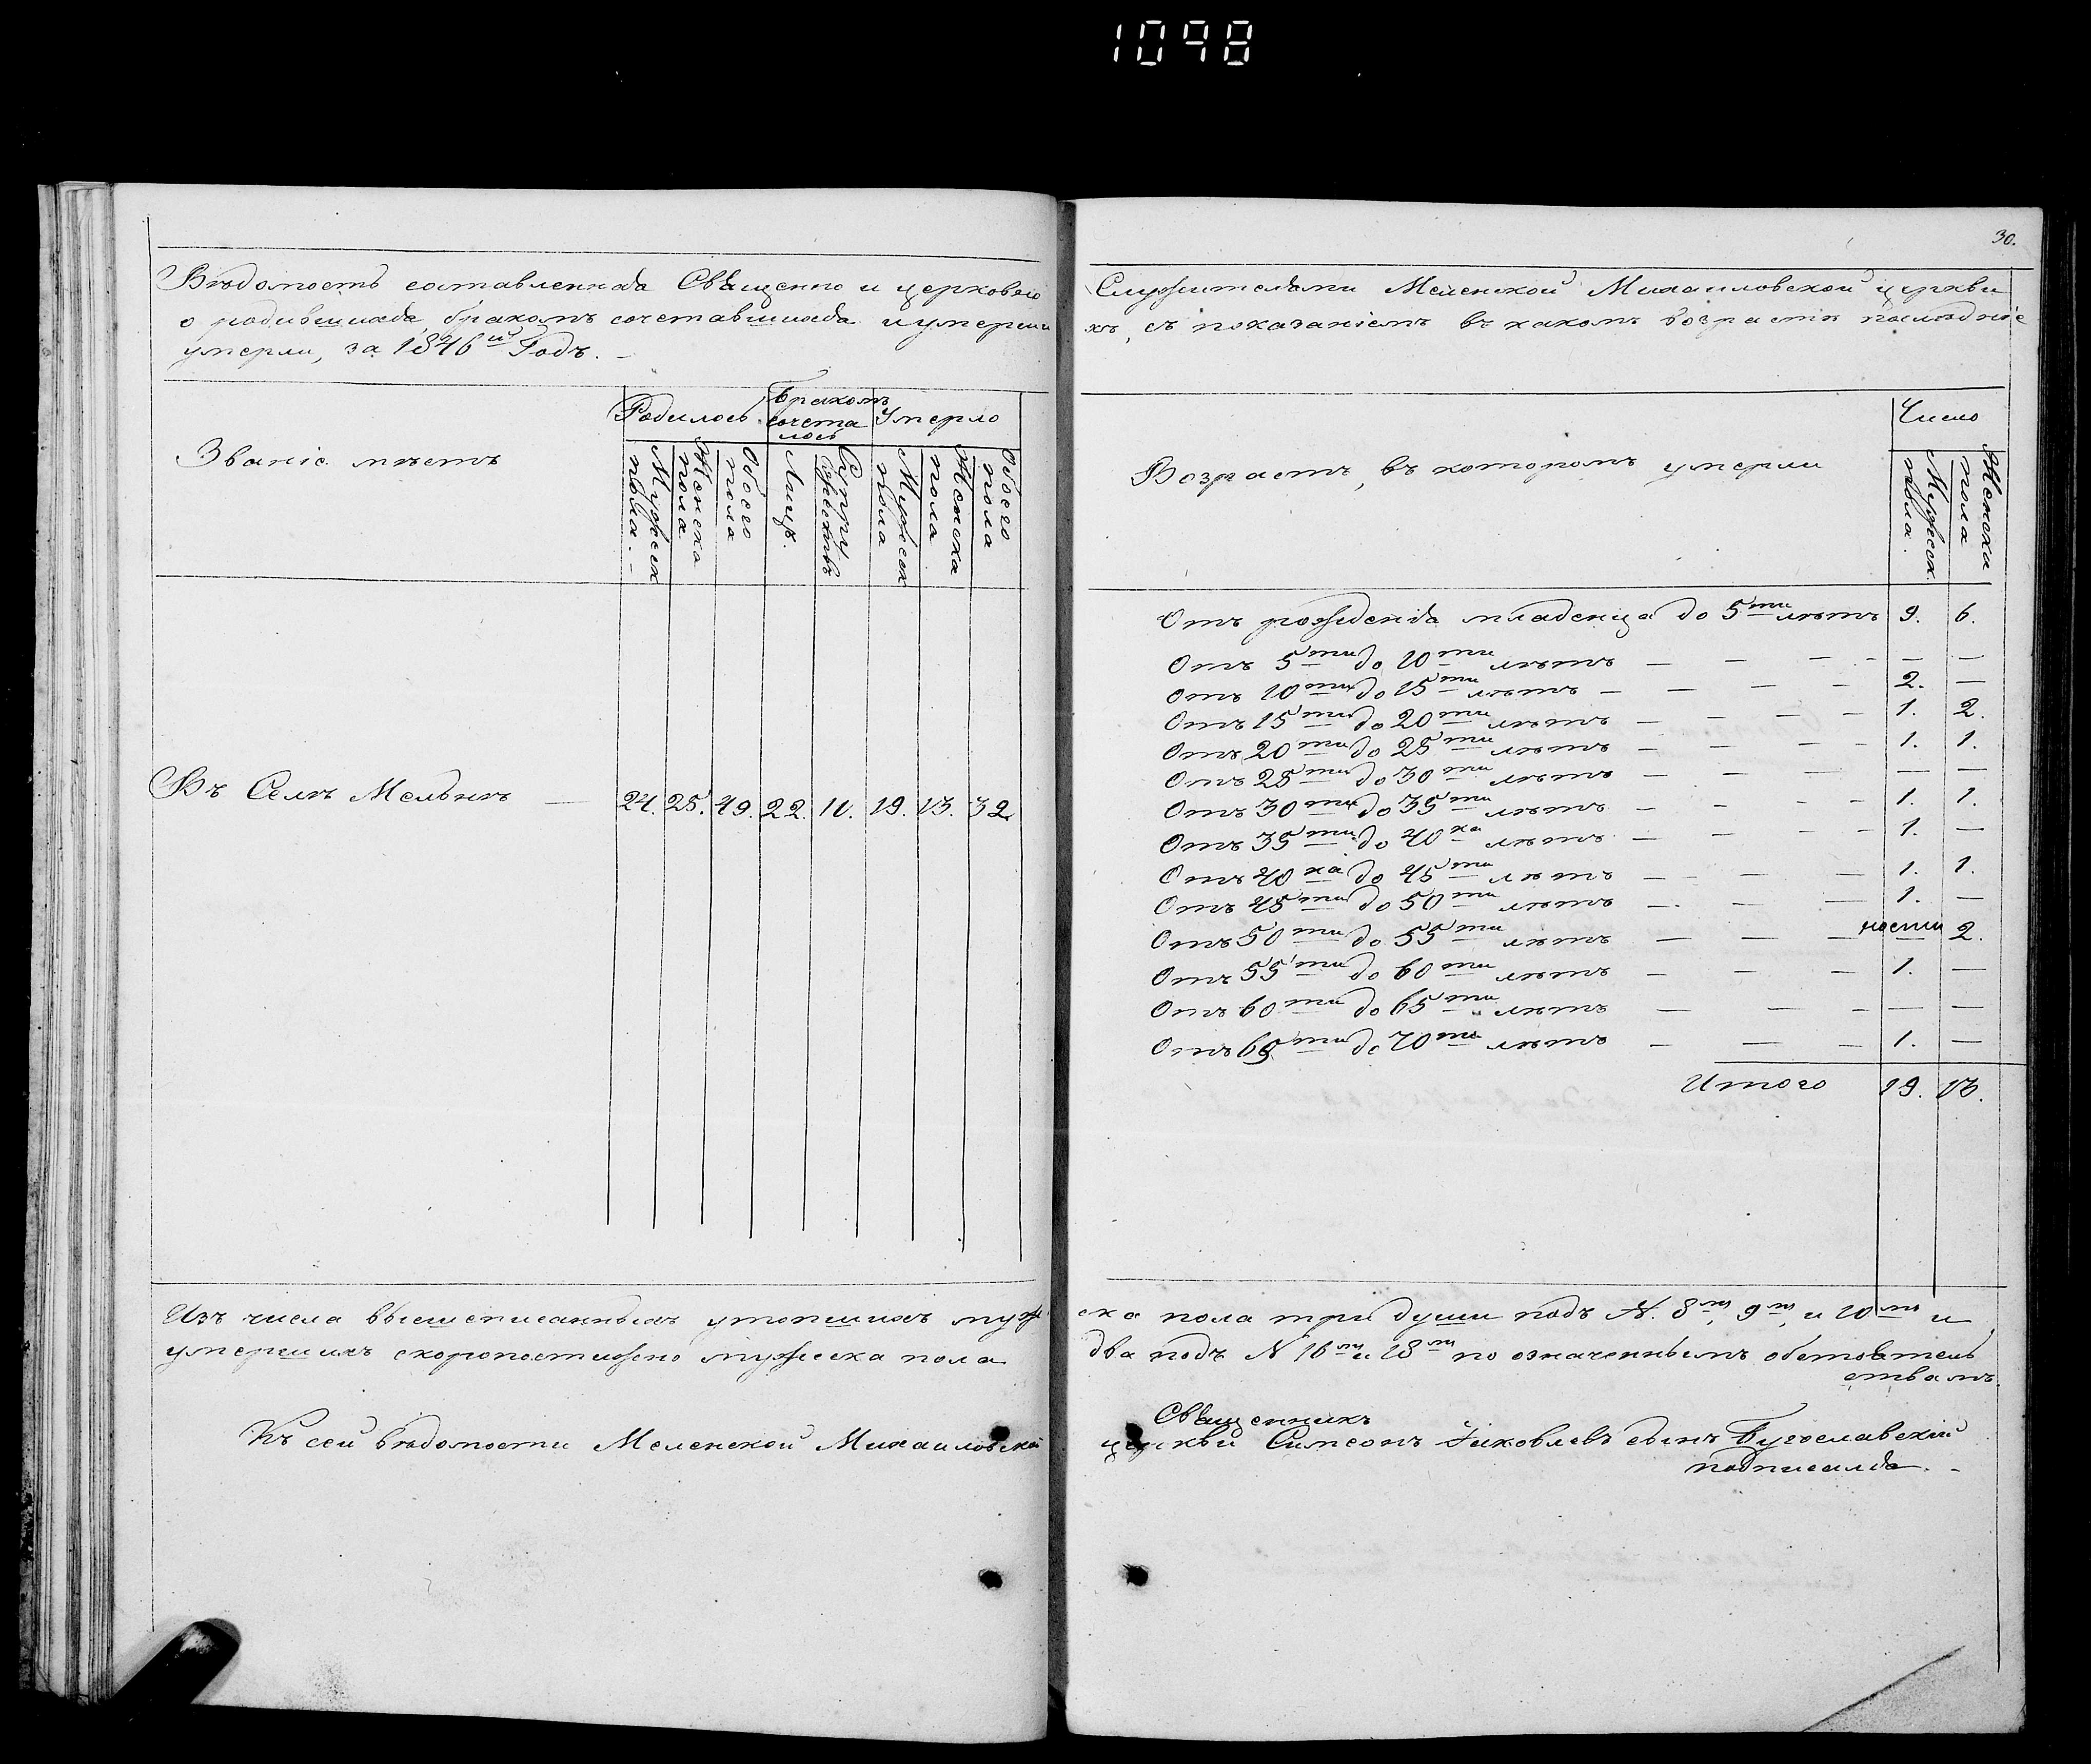 1098
30.
Вѣдомость составленная Священно и церковно
о родившихся, бракомъ сочетавшихся и умерши
умерли, за 1846й Годъ.
Званіе мѣстъ
Родилось
Бракомъ
сочета
лось
Умерло
Мужеск
пола
Женска
пола
Обоего
пола
Лицъ.
Супру
жествъ
Мужеск
пола
Женска
пола
Обоего
пола
Въ Селѣ Мельнѣ — 24. 25. 49. 22. 11. 19. 13. 32
Изъ числа вышеписанныхъ утопшихъ муже
умершихъ скоропостижно мужеска пола
Къ сей вѣдомости Меленской Михаиловской
Служителями Меленской Михаиловской церкви
хъ, съ показаніемъ въ какомъ возрастѣ послѣдніе
Возрастъ, въ которомъ умерли
Число
Мужеск.
пола.
Женска
пола
Отъ рожденія младенца до 5ти лѣтъ 9. 6.
Отъ 5ти до 10ти лѣтъ — — — — — —
Отъ 10ти до 15ти лѣтъ — — — — 2. —
Отъ 15ти до 20ти лѣтъ — — — — 1. 2.
Отъ 20ти до 25ти лѣтъ — — — — 1. 1.
Отъ 25ти до 30ти лѣтъ — — — — — —
Отъ 30ти до 35ти лѣтъ — — — — 1. 1.
Отъ 35ти до 40ка лѣтъ — — — — 1. —
Отъ 40ка до 45ти лѣтъ — — — — 1. 1.
Отъ 45ти до 50ти лѣтъ — — — 1. —
Отъ 50ти до 55ти лѣтъ — — — — 2.
Отъ 55ти до 60ти лѣтъ — — — 1. —
Отъ 60ти до 65ти лѣтъ — — — — —
Отъ 65ти до 70ти лѣтъ — — — 1. —
Итого 19. 13.
ска пола три души подъ №. 8м, 9м, и 10м и
два подъ № 16м и 18м по означеннымъ обстоятель
ствамъ.
Священникъ
церкви Симеонъ Яковлевъ сынъ Бугославскій
подписался.